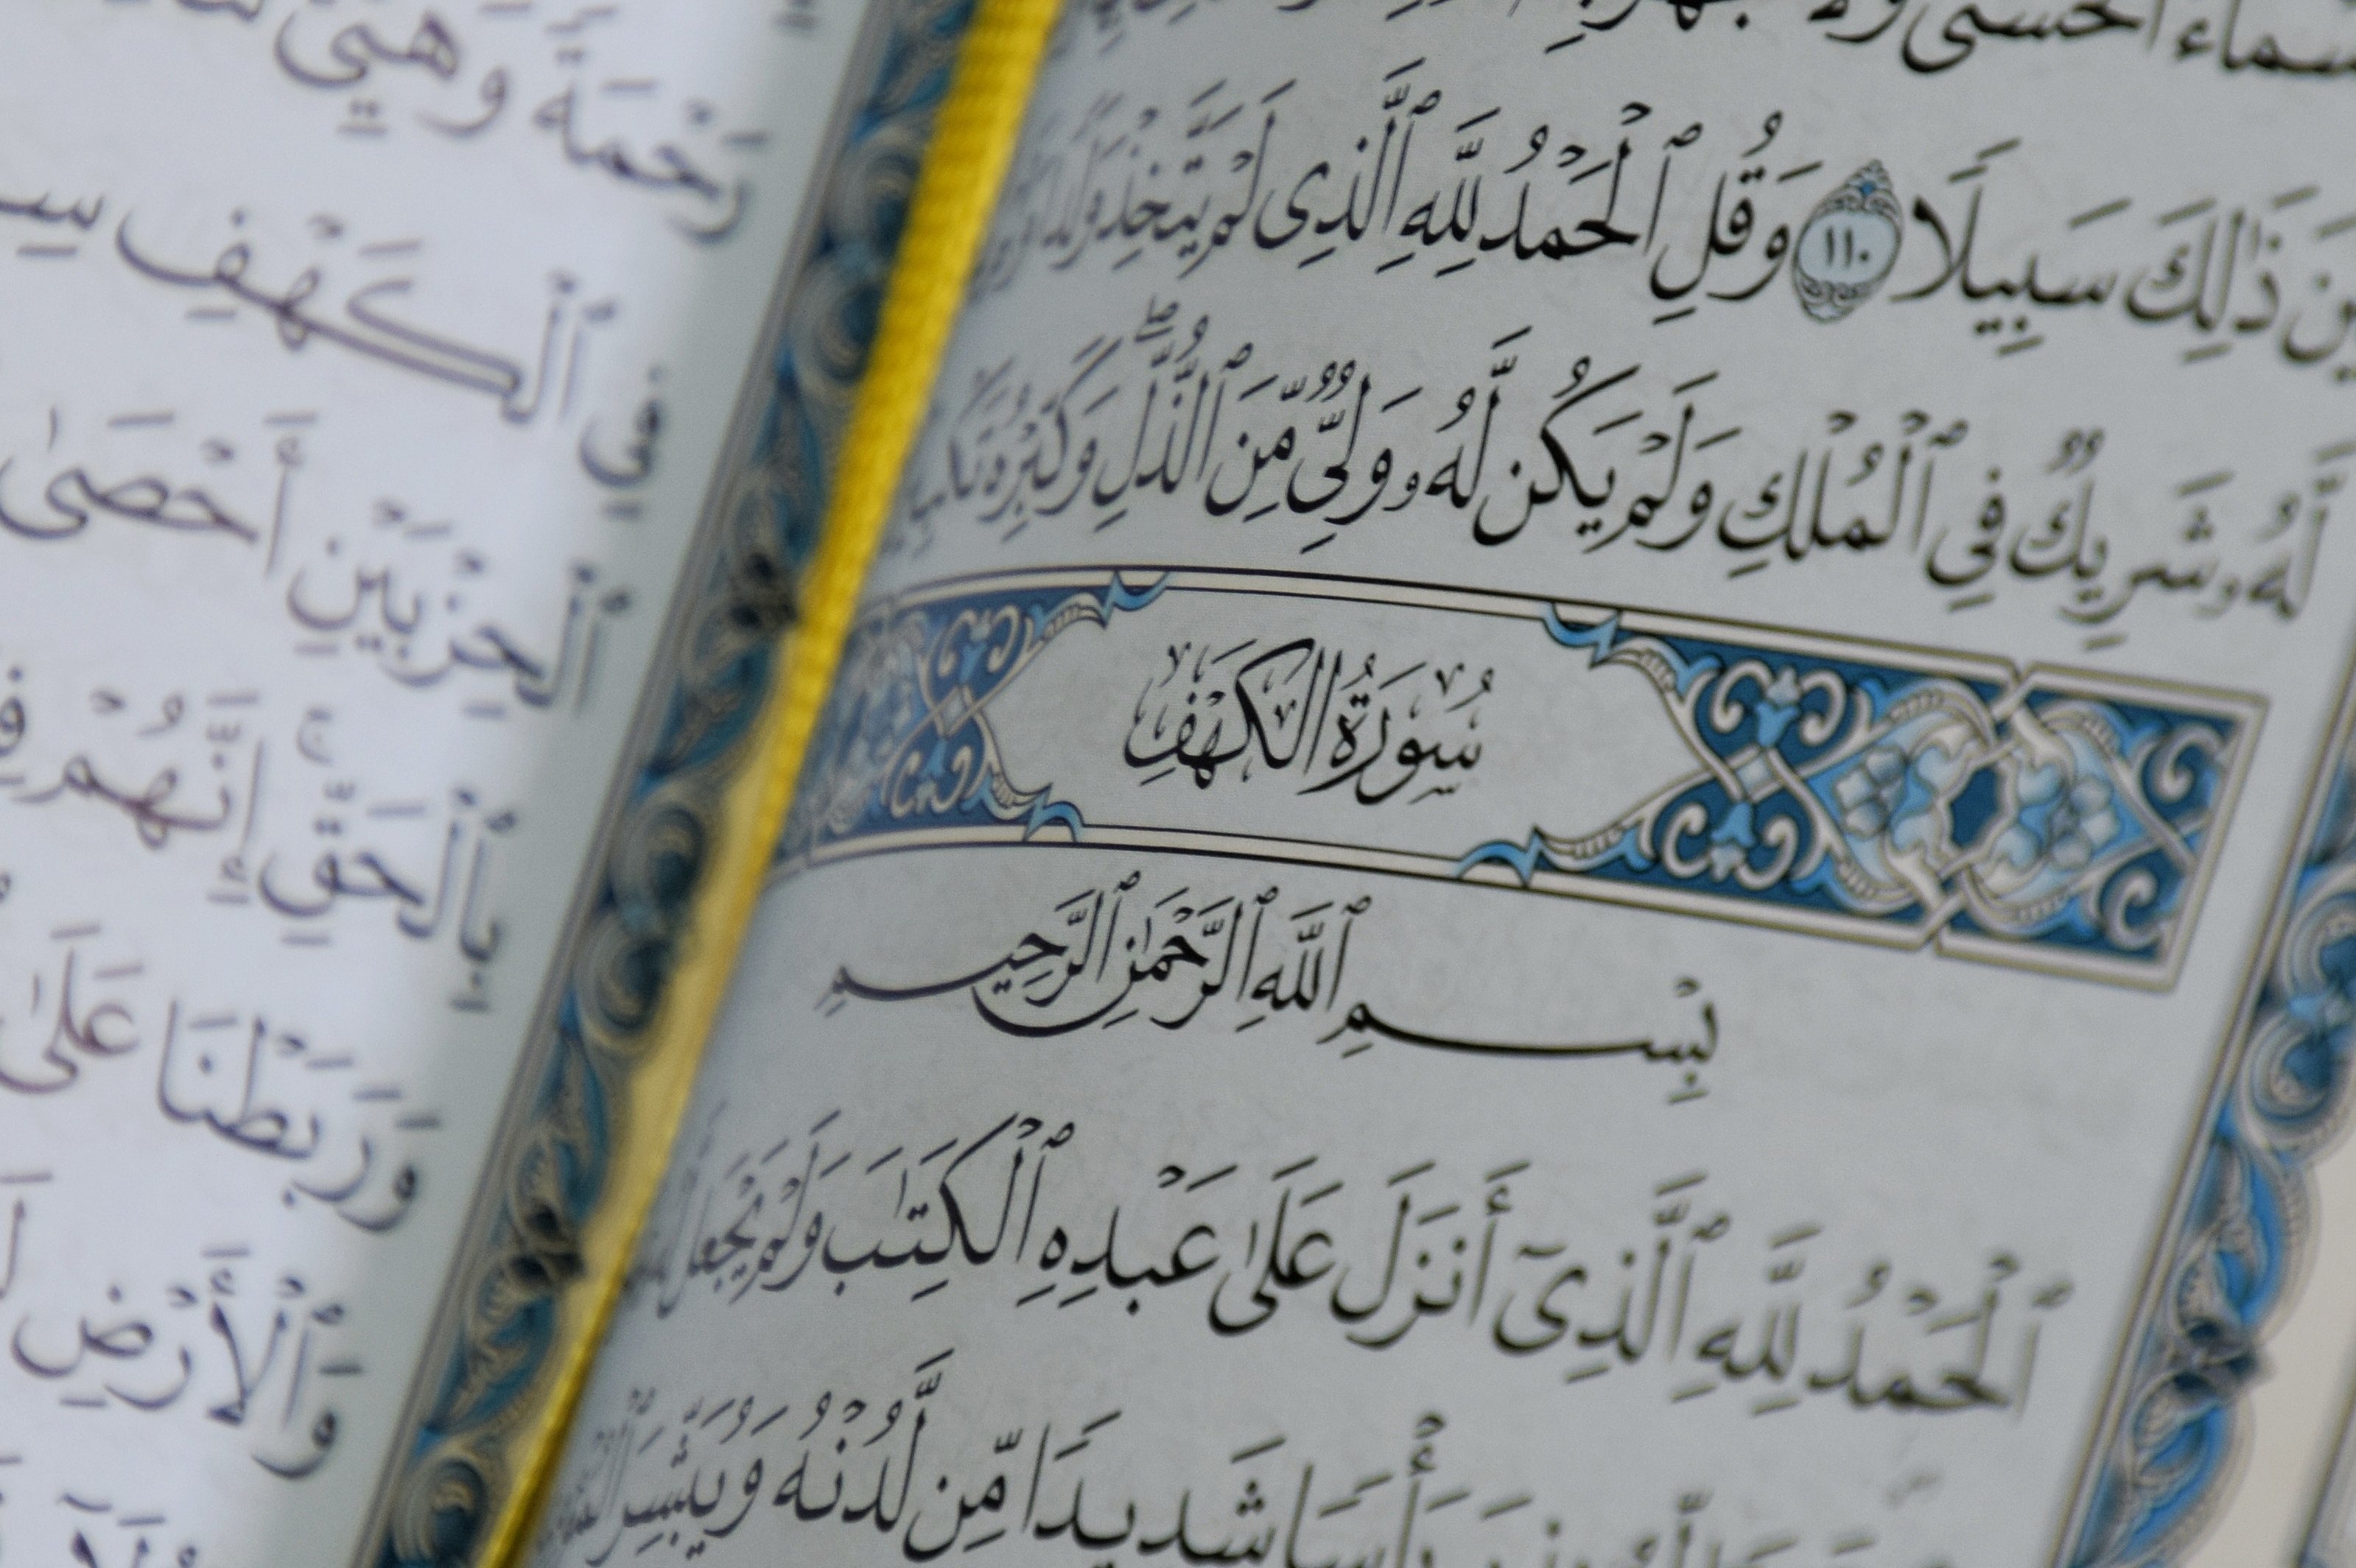 ٱلۡحُسۡنَىٰ وَلَا
ذَٰلِكَ سَبِيلٗا ١١٠ وَقُلِ ٱلۡحَمۡدُ لِلَّهِ ٱلَّذِي لَمۡ يَتَّخِذۡ وَلَدٗا
لَّهُۥ شَرِيكٞ فِي ٱلۡمُلۡكِ وَلَمۡ يَكُن لَّهُۥ وَلِيّٞ مِّنَ ٱلذُّلِّۖ وَكَبِّرۡهُ
سُورَةُ الكَهۡفِ
بِسۡمِ ٱللَّهِ ٱلرَّحۡمَٰنِ ٱلرَّحِيمِ
ٱلۡحَمۡدُ لِلَّهِ ٱلَّذِيٓ أَنزَلَ عَلَىٰ عَبۡدِهِ ٱلۡكِتَٰبَ وَلَمۡ يَجۡعَل
بَأۡسٗا شَدِيدٗا مِّن لَّدُنۡهُ وَيُبَشِّرَ
رَحۡمَةٗ وَهَيِّئۡ
فِي ٱلۡكَهۡفِ
ٱلۡحِزۡبَيۡنِ أَحۡصَىٰ
بِٱلۡحَقِّۚ إِنَّهُمۡ
وَرَبَطۡنَا عَلَىٰ
وَٱلۡأَرۡضِ